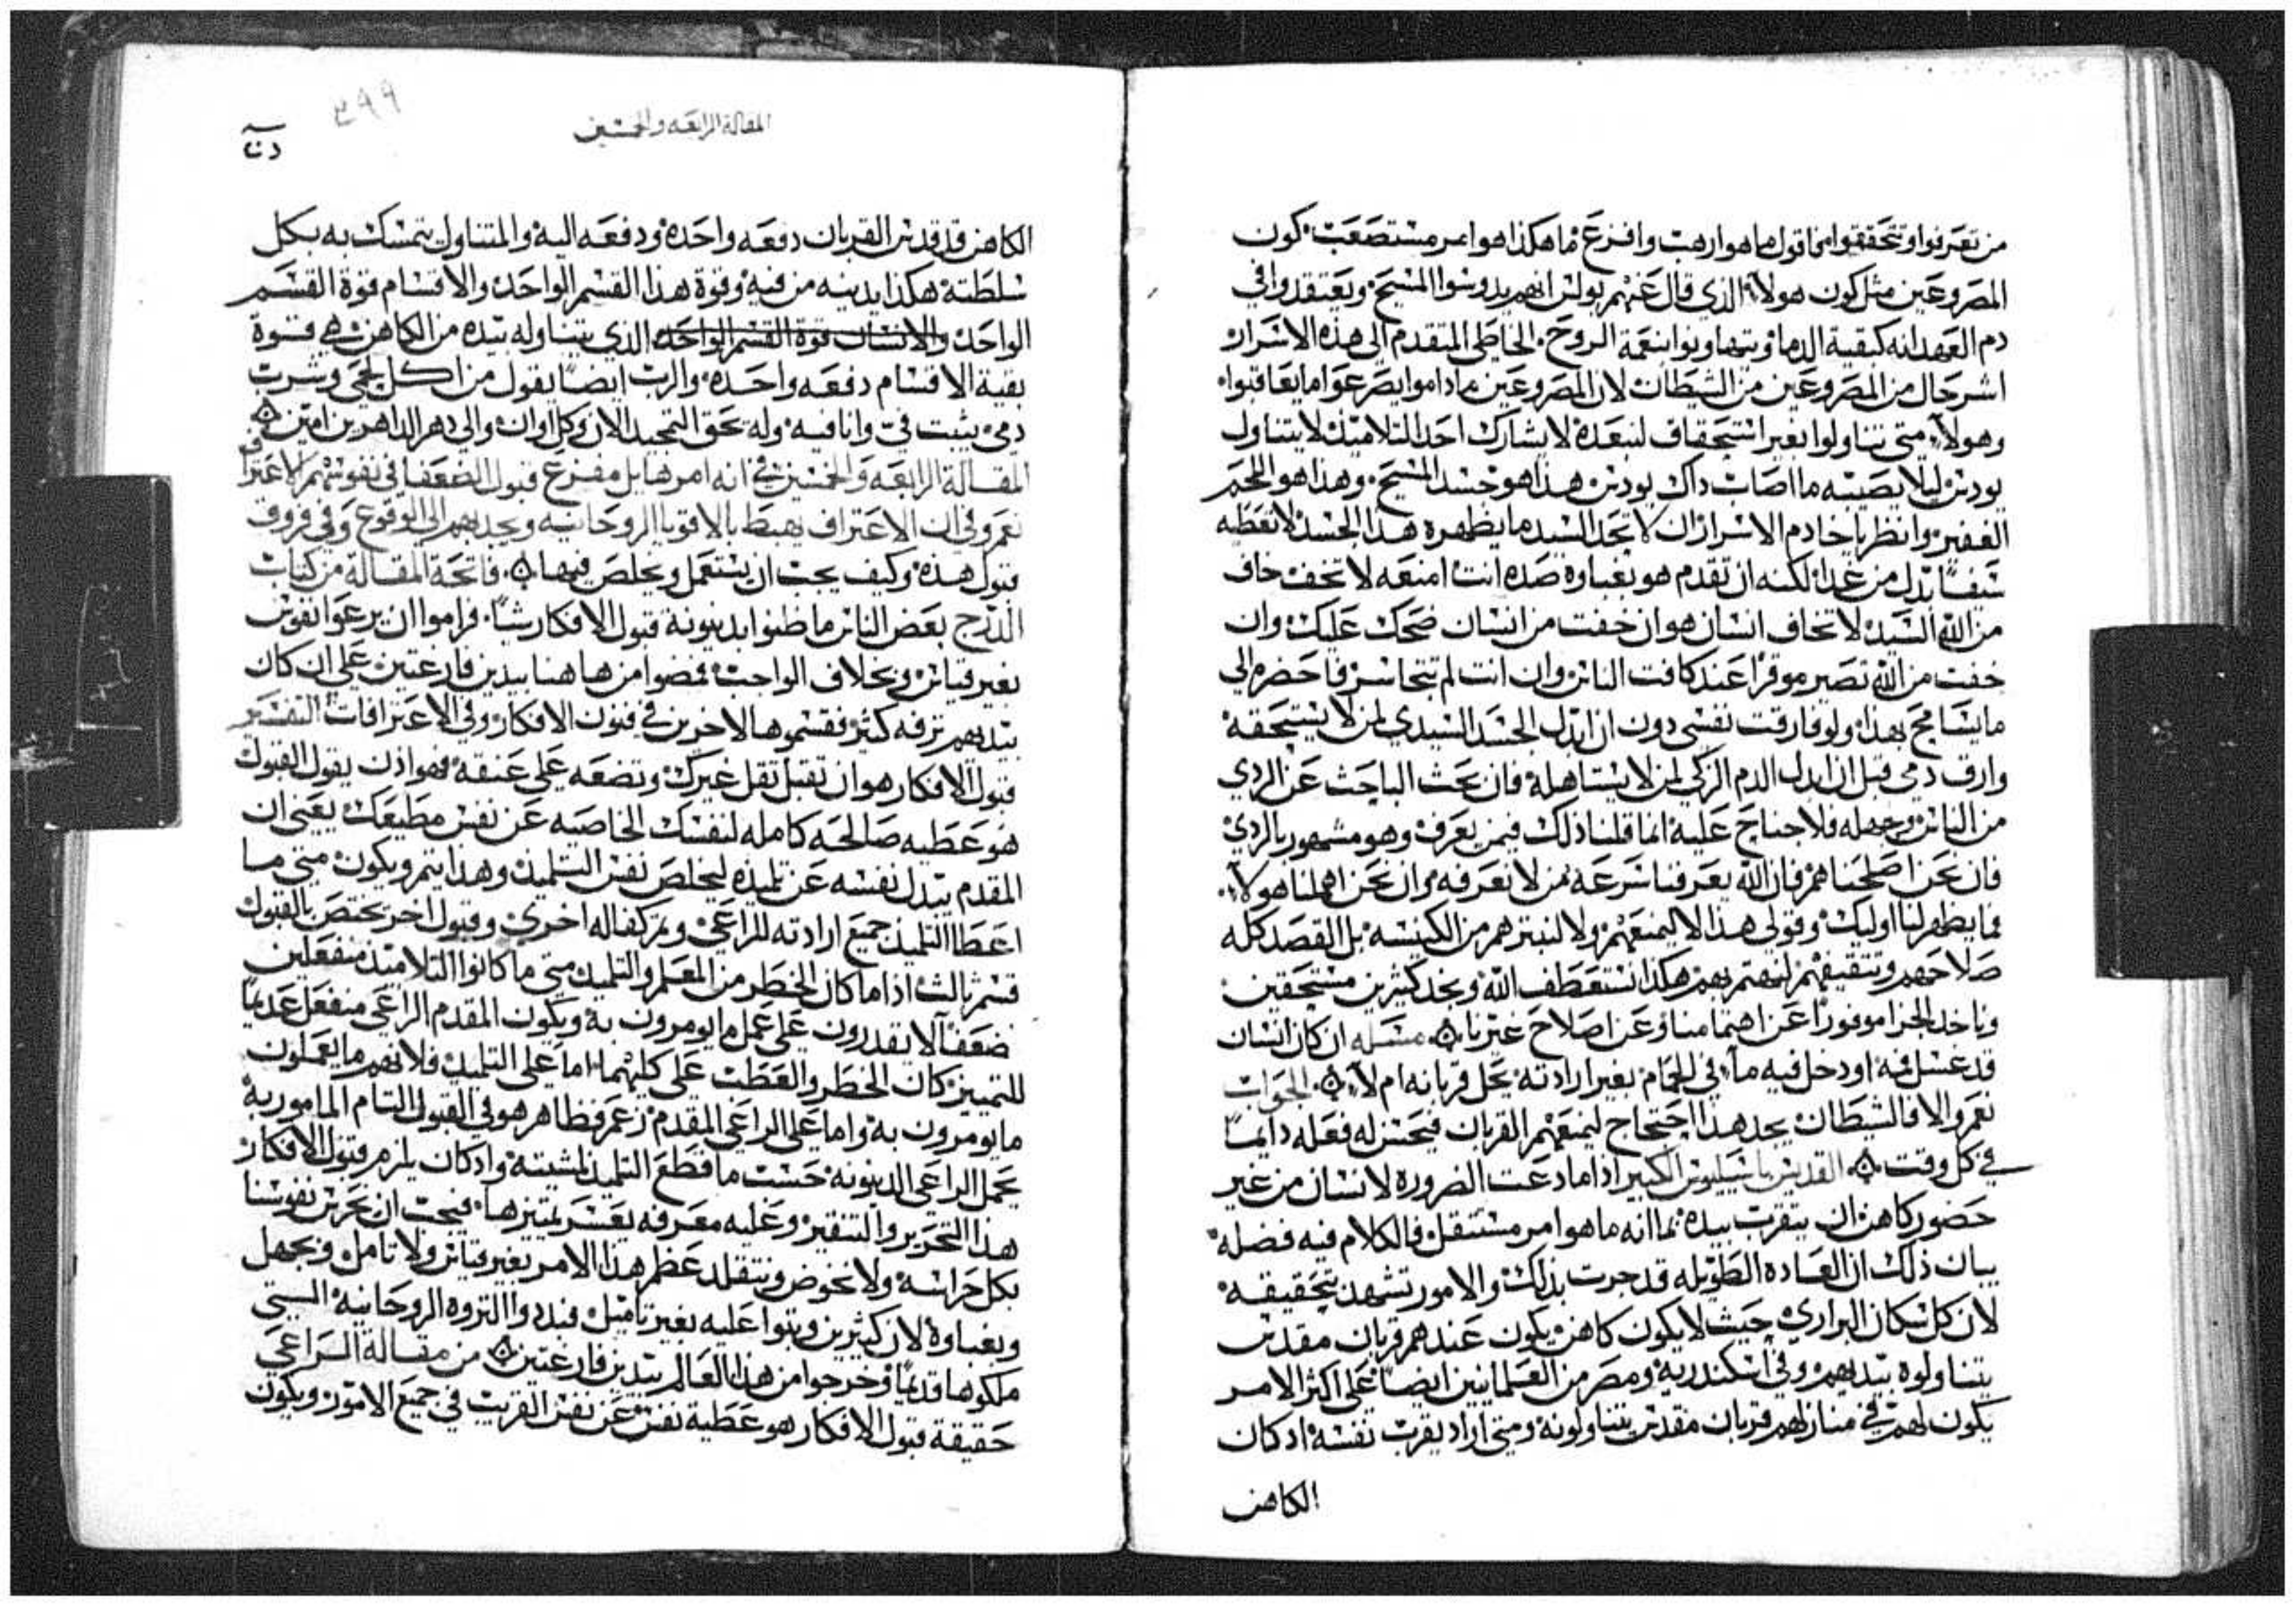 من تعرفوا وتتحققوا مني اقول ما هو ارهب وافزع ما هكذا هو امر مستصعب كون
المصروعين مثل كون هولاء الذي قال عنهم بولس انهم يدوسوا المسيح ويعتقدوا في
دم العهد انه كبقية الدماء ويتهاونوا بنعمة الروح الخاطي المتقدم الي هذه الاسرار
اشر حال من المصروعين من الشيطان لان المصروعين ما داموا يصرعوا ما يعاقبوا
وهولاء متي تناولوا بغير استحقاق لنبعده لا يشارك احد التلاميذ لا يتناول
يودس ليلا يصيبه ما اصاب داك يودس هذا هو جسد المسيح وهذا هو اللحم
الغفير وانظر يا خادم الاسرار ان لا تجد السيد ما يظهره هذا الجسد لا تعطيه
سيفا بدل من غدا لكنه ان تقدم هو بغباوه صده انت امنعه لا تخف خاف
من الله السيد لا تخاف انسان هو ان خفت من انسان ضحك عليك وان
خفت من الله تصير موقرا عند كافت الناس وان انت لم تتجاسر فاحضره الي
ما يسامح بهذا ولو فارقت نفسي دون ان ابدل الجسد السيدي لمن لا يستحقه
وارق دمي قبل ان ابدل الدم الزكي لمن لا يستاهله فان بحث الباحث عن الردي
من الناس وجهله فلا جناح عليه انما قلنا ذلك فيمن يعرف وهو مشهور بالردي
فان نحن اصلحناهم فان الله يعرفنا سرعه من لا نعرفه وان نحن اهملنا هولاء
فما يظهر لنا اوليك وقولي هذا لا ليمنعهم ولا لنبترهم من الكنيسه بل القصد كله
صلاحهم وتثقيفهم لنهتم بهم هكذا نستعطف الله ونجد كثيرين مستحقين
وناخد الجزا موفورا عن اهتمامنا وعن اصلاح غيرنا ⁘ مسله ان كان انسان
قد غسل فمه او دخل فيه ماء في الحمام بغير ارادته يحل قربانه ام لا ⁘ الجواب
نعم والا فالشيطان يجد هذا احتجاج ليمنعهم القربان فيحسن له فعله دايما
في كل وقت ⁘ القديس باسيليوس الكبير اذا ما دعت الضروره لانسان من غير
حضور كاهن ان يتقرب بيده بما انه ما هو امر مستثقل فالكلام فيه فضله
بيان ذلك ان العاده الطويله قد جرت بذلك والامور تشهد بتحقيقه
لان كل سكان البراري حيث لا يكون كاهن يكون عندهم قربان مقدس
يتناولوه بيديهم وفي اسكندريه ومصر من العلمانيين ايضا علي اكثر الامر
يكون لهم في منازلهم قربان مقدس يتناولونه ومتي اراد يقرب نفسه اد كان
الكاهن
٣٩٩
المقاله الرابعه والخمسين
الكاهن قد قدس القربان دفعه واحده ودفعه اليه والمتناول يتمسك به بكل
سلطته هكذا يدنيه من فيه وقوة هذا القسم الواحد والاقسام قوة القسم
الواحد والانسان قوة القسم الواحد الذي يتناوله بيده من الكاهن هي قوة
بقية الاقسام دفعه واحده والرب ايضا يقول من اكل لحمي وشرب
دمي يثبت في وانا فيه وله يحق التمجيد الان وكل اوان والي دهر الداهرين امين ⁘
المقالة الرابعه والخمسين في انه امر هايل مفزع قبول الضعفا في نفوسهم الاعتراف
نعم وفي ان الاعتراف يهبط بالاقويا الروحانيه ويجديهم الي الوقوع وفي فروق
قبول هذه وكيف يجب ان يستعمل ويخلص فيها ⁘ فاتحة المقالة من كتاب
الدرج بعض الناس ما ظنوا بدينونة قبول الافكار شيا فراموا ان يرعوا نفوس
بغير قياس وبخلاف الواجب فمضوا من هاهنا بيدين فارغتين علي ان كان
بيديهم ترفه كثير فقسموها لاخرين في فنون الافكار وفي الاعترافات التفسير
قبول الافكار هو ان تقبل ثقل غيرك وتضعه علي عنقه فهو اذن يقول القبول
هو عطيه صالحه كامله لنفسك الخاصيه عن نفس مطيعك يعني ان
المقدم يبدل نفسه عن تلميذه ليخلص نفس التلميذ وهذا يتم ويكون متي ما
اعطا التلميذ جميع ارادته للراعي وتم كفاله اخري وقبول اخر يختص بالقبول
قسم ثالث اذا ما كان الخطر من المعلم والتلميذ متي ما كانوا التلاميذ منفعلين
ضعفا لا يقدرون علي عمل ما يومرون به ويكون المقدم الراعي منفعل عديما
للتمييز كان الخطر والعطب علي كليهما اما علي التلميذ فلانهم ما يعملون
ما يومرون به واما علي الراعي المقدم زعم فظاهر هو في القبول التام المامور به
يحمل الراعي الدينونه حسب ما قطع التلميذ لمشيته واد كان يلزم قبول الافكار
هذا التحرير والتنقير وعليه معرفه يعسر تمييزها فيجب ان نحرس نفوسنا
بكل حراسه ولا نخوض ونتقلد عظم هذا الامر بغير قياس ولا تامل وبجهل
وبغباوه لان كثيرين وثبوا عليه بغير تاميل فبددوا الثروه الروحانيه التي
ملكوها قديما وخرجوا من هذا العالم بيدين فارغتين ⁘ من مقالة الراعي
حقيقة قبول الافكار هو عطية نفس عن نفس القريب في جميع الامور ويكون